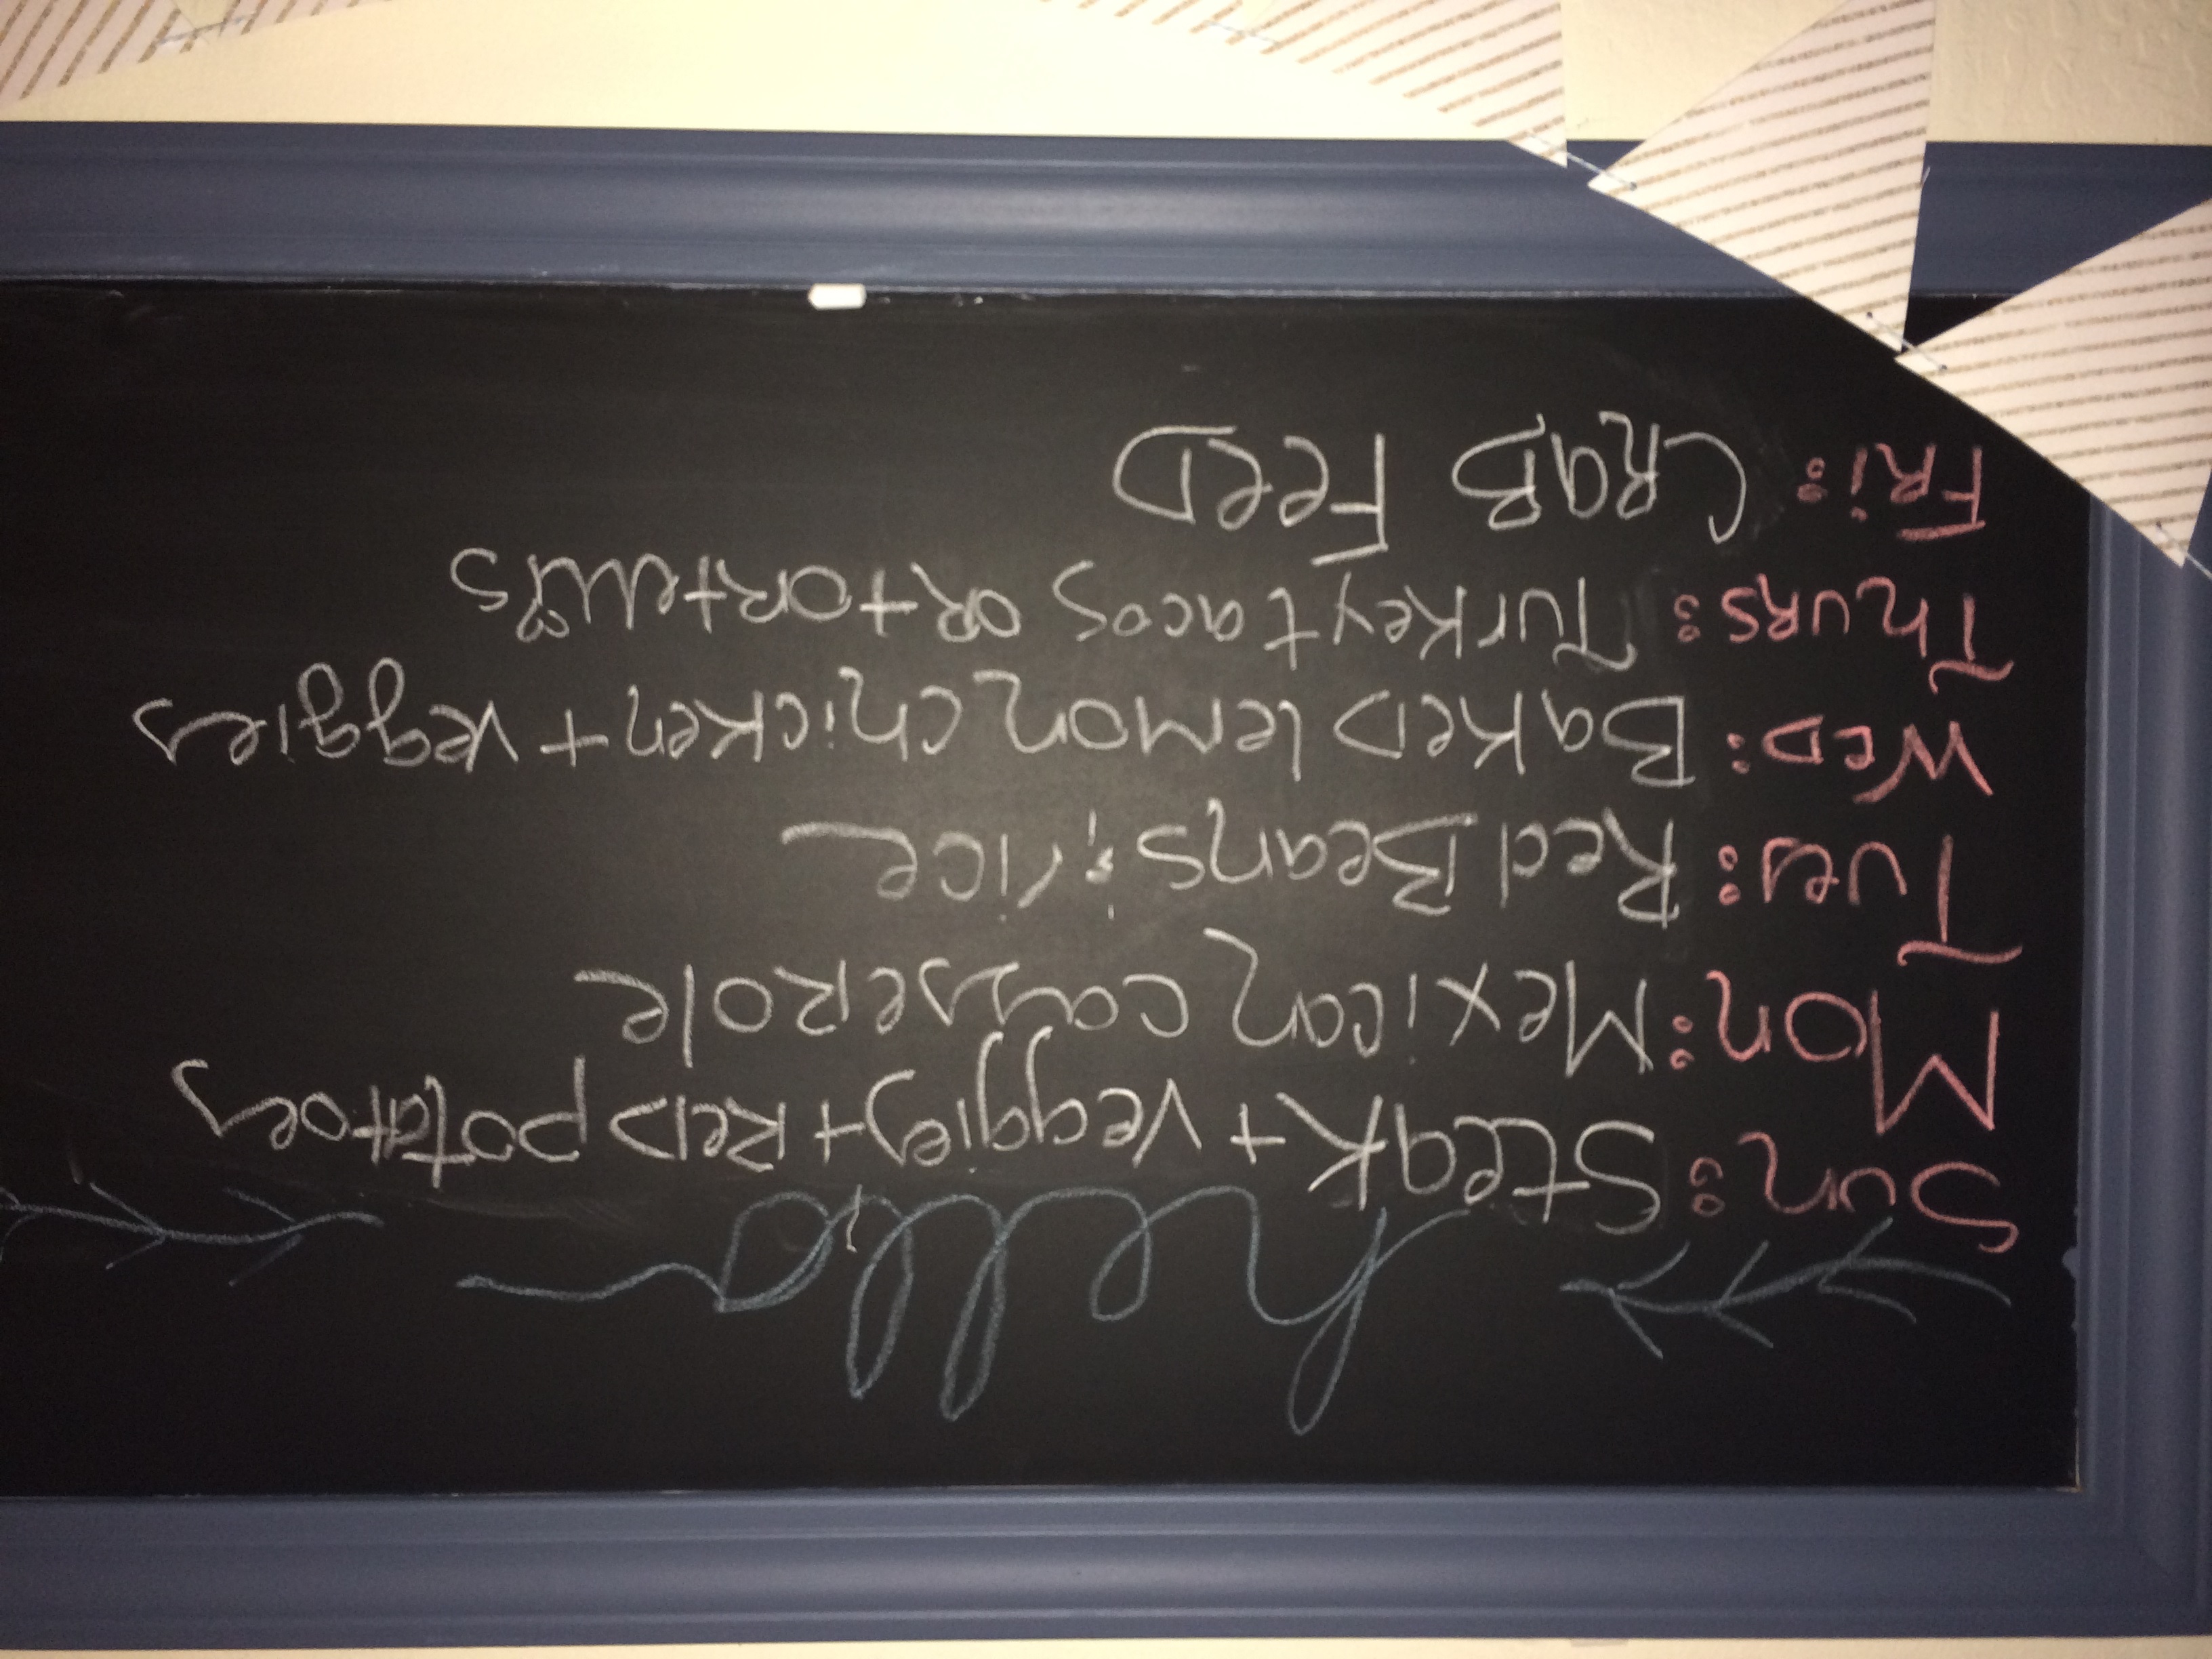 hello
Sun: Steak + veggies + Red potatoes
Mon: Mexican casserole
Tues: Red Beans & rice
Wed: Baked lemon chicken + veggies
Thurs: Turkey tacos or tortellis
Fri: CRaB FeeD